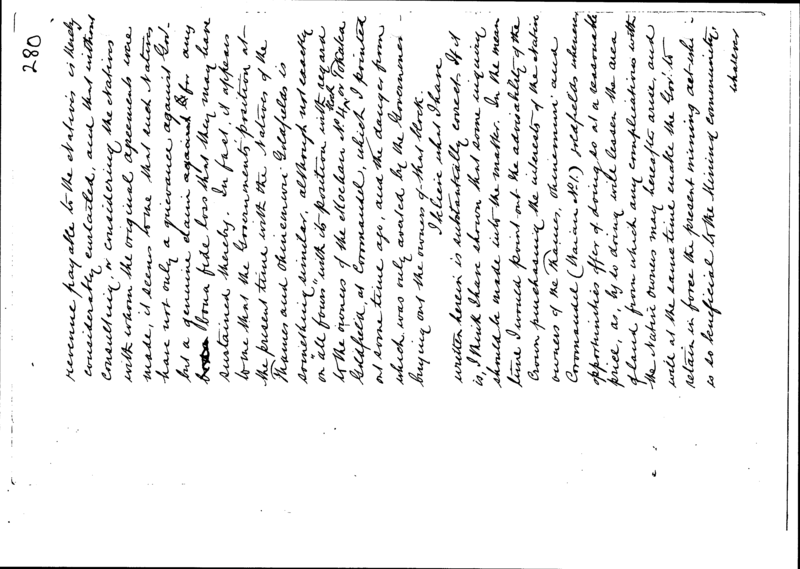 280
revenue payable to the Natives is likely
considerably curtailed, and that without
consulting or considering the Natives
with whom the original agreements were
made, it seems to me that such Natives
have not only a grievance against Govt
but a genuine claim against it for any
bona fide loss that they may have
sustained thereby. In fact, it appears
to me that the Government's position at
the present time with the Natives of the
Thames and Ohinemuri Goldfields is
something similar, although not exactly
on "all fours" with its position with regard
to the owners of the Moehau No 4 Block or Tokatea
Goldfield at Coromandel, which I pointed
out some time ago, and the danger from
which was only averted by the Government
buying out the owners of that block.
I believe what I have
written herein is substantially correct. If it
is, I think I have shown that some inquiry
should be made into the matter. In the mean
time I would point out the advisability of the
Crown purchasing the interests of the Native
owners of the Thames, Ohinemuri and
Coromandel (Waiau No. 1) goldfields when
opportunities offer of doing so at a reasonable
price, as, by so doing will lessen the area
of land from which any complications with
the Native owners may hereafter arise, and
will at the same time enable the Govt to
retain in force the present mining act which
is so beneficial to the Mining community